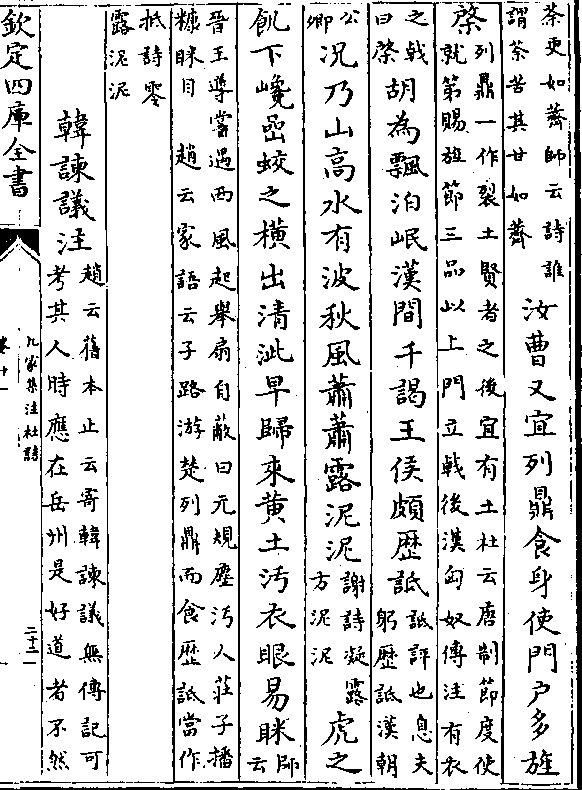 荼更如薺師云詩誰
謂荼苦其甘如薺
汝曹又宜列鼎食身使門户多旌
棨
列鼎一作裂土賢者之後宜有土杜云唐制節度使
就第賜旌節三品以上門立戟後漢匈奴傳注有衣
之戟
曰棨
胡為飄泊岷漢間千謁王侯頗歴詆
詆評也息夫
躬歴詆漢朝
公
卿
況乃山高水有波秋風蕭蕭露泥泥
謝詩凝露
方泥泥
虎之
飢下巉嵒蛟之横出清泚早歸來黄土汚衣眼易眯
師
云
晉王導嘗遇西風起舉扇自蔽曰元規塵汚人莊子播
糠眯目 趙云家語云子路游楚列鼎而食歴詆當作
抵詩零
露泥泥
韓諫議注
趙云舊本止云寄韓諫議無傳記可
考其人時應在岳州是好道者不然
欽定四庫全書
九家集注杜詩
卷十一
二十二